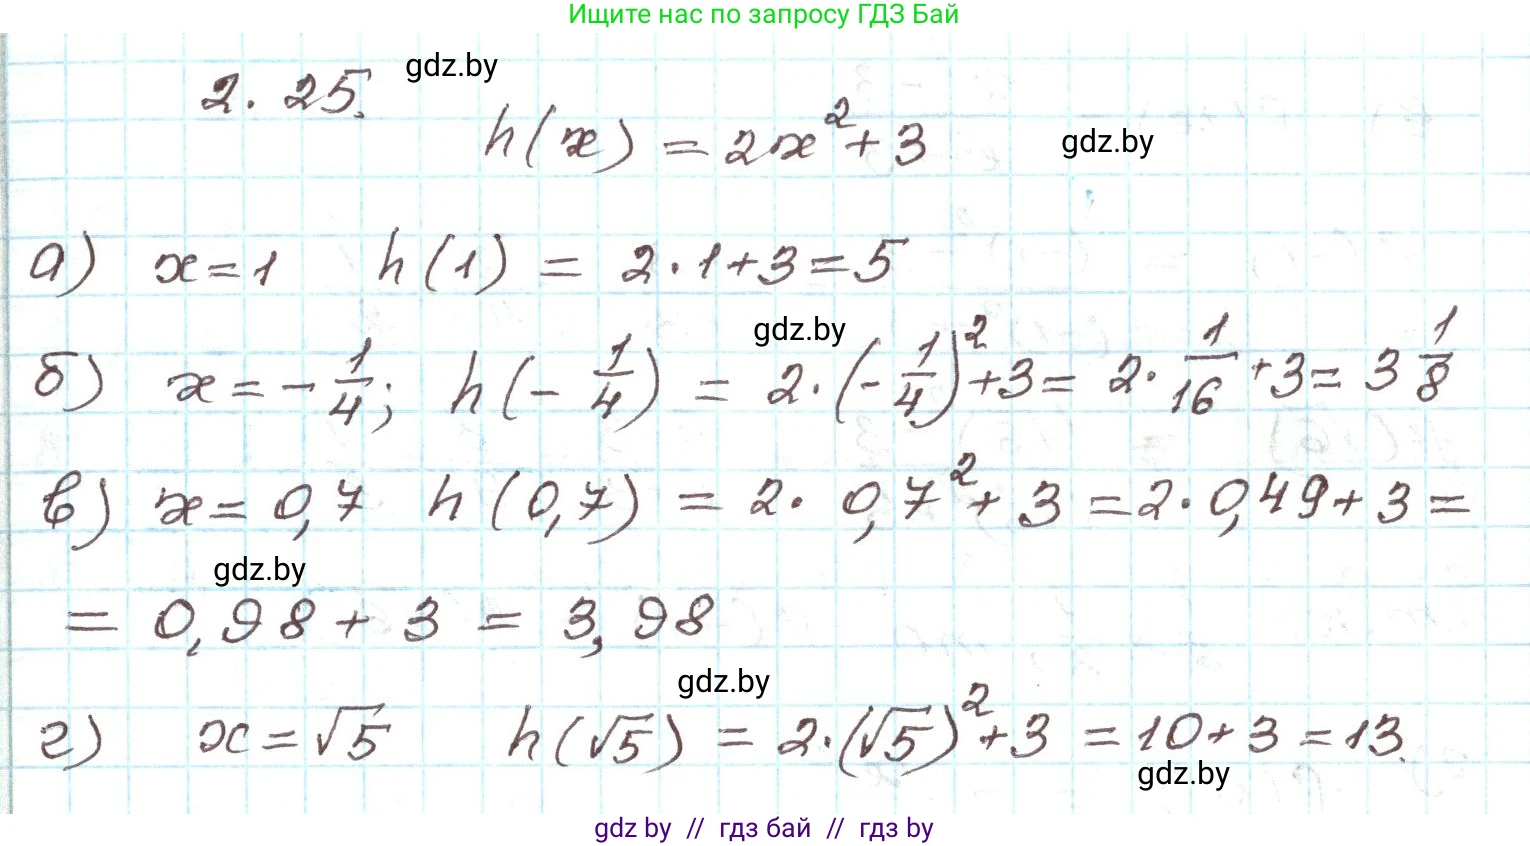 Ищите нас по запросу ГДЗ Бай
2.25. gdz.by
h(x) = 2x² + 3 gdz.by
а) x = 1 h(1) = 2·1+3=5
gdz.by
б) x = -1/4; h(-1/4) = 2·(-1/4)²+3 = 2·1/16+3 = 3 1/8
в) x = 0,7 h(0,7) = 2·0,7²+3 = 2·0,49+3 =
gdz.by
= 0,98 + 3 = 3,98
gdz.by
г) x = √5 h(√5) = 2·(√5)²+3 = 10+3 = 13.
gdz.by
gdz by // гдз бай // гдз by